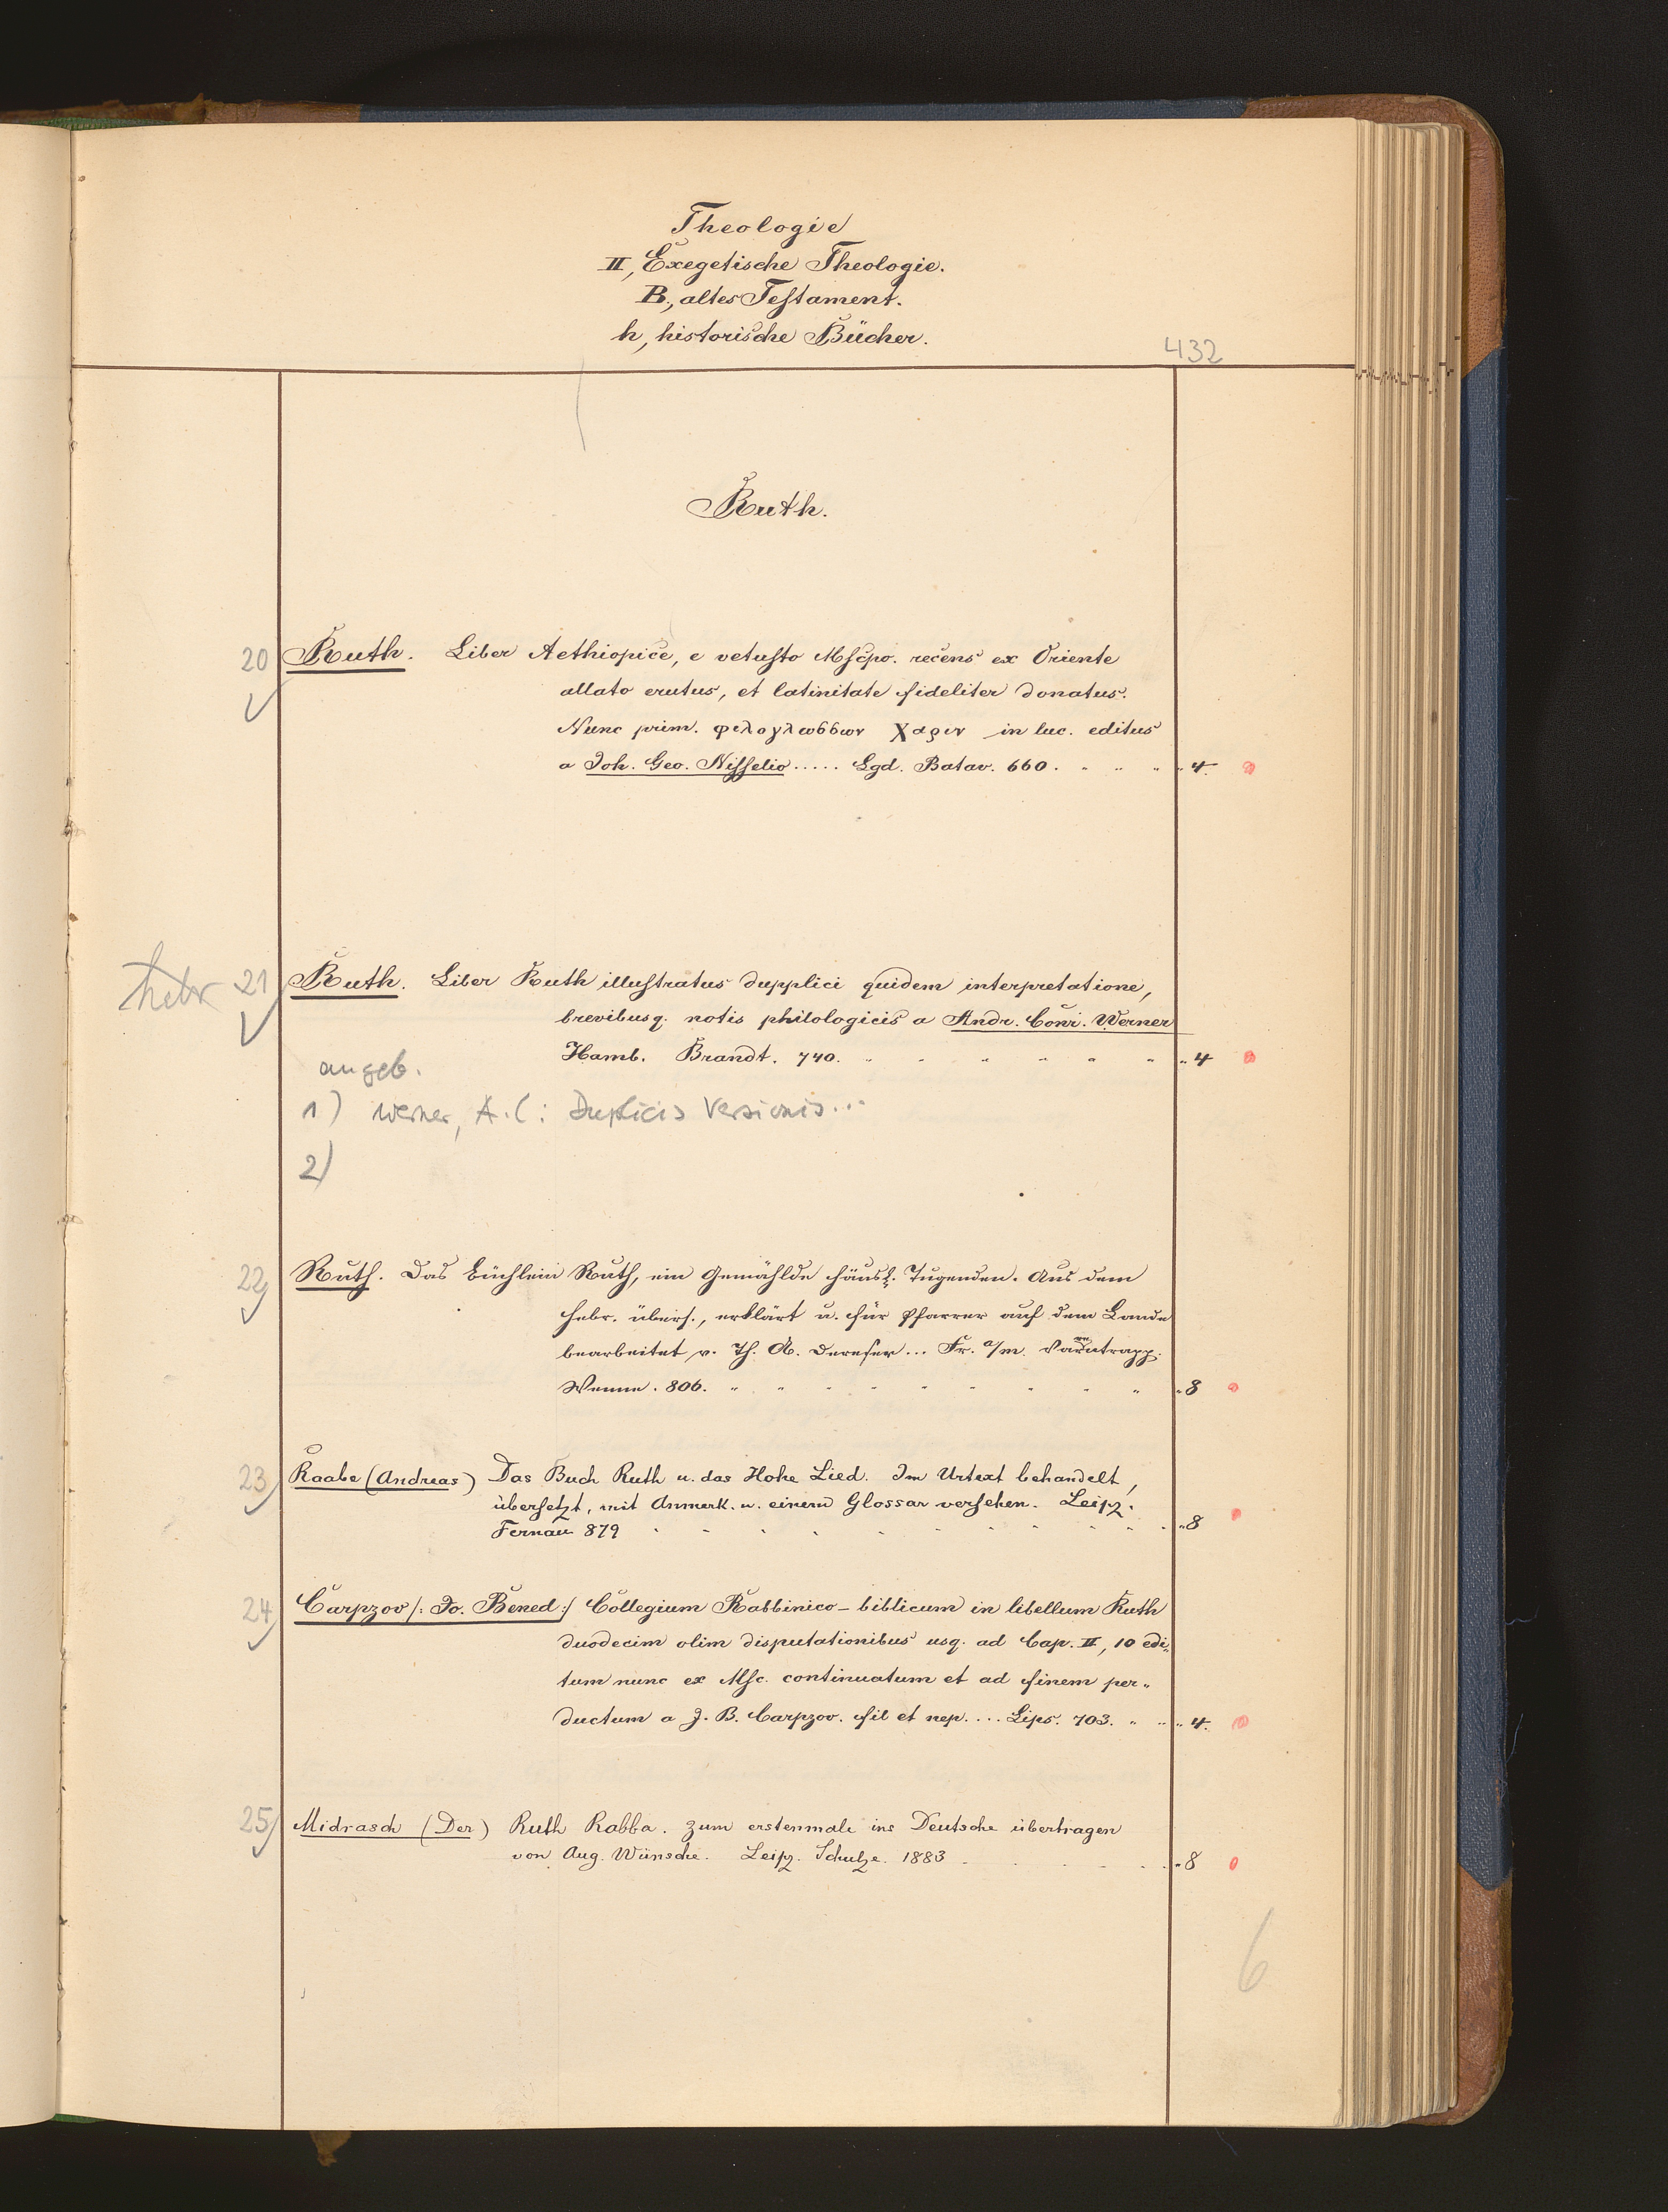 Theologie
II, Exegetische Theologie.
B., altes Testament.
h, historische Bücher.
432
Ruth.
20 Ruth. Liber Aethiopice, e vetusto Mscpo. recens ex Oriente
allato erutus, et latinitate fideliter donatus.
Nunc prim. φιλογλωσσων Χαριν in luc. editus
a Joh. Geo. Nisselio ..... Lgd. Batav. 660. " " " " 4.
hebr 21 Ruth. Liber Ruth illustratus dupplici quidem interpretatione,
brevibusq. notis philologicis a Andr. Conr. Werner
Hamb. Brandt. 740. " " " " " " " 4
angeb.
1) Werner, A.C: Duplicis Versionis...
2)
22 Ruth. Das Büchlein Ruth, ein Gemählde häusl. Tugenden. Aus dem
Hebr. übers., erklärt u. für Pfarrer auf dem Lande
bearbeitet v. Th. A. Dereser ... Fr. a/m. Varrentrapp.
Wenner. 806. " " " " " " " " " " 8
23 Raabe (Andreas) Das Buch Ruth u. das Hohe Lied. Im Urtext behandelt,
übersetzt, mit Anmerk. u. einem Glossar versehen. Leipz.
Fernau 879 " " " " " " " " " " 8
24 Carpzov /: Jo. Bened :/ Collegium Rabbinico-biblicum in libellum Ruth
duodecim olim disputationibus usq. ad Cap. II, 10 edi„
tum nunc ex Msc. continuatum et ad finem per„
ductum a J. B. Carpzov. fil et nep. ... Lips. 703. " " " 4.
25 Midrasch (Der) Ruth Rabba. zum erstenmale ins Deutsche übertragen
von Aug. Wünsche. Leipz. Schulze. 1883 . . . . . " 8
6